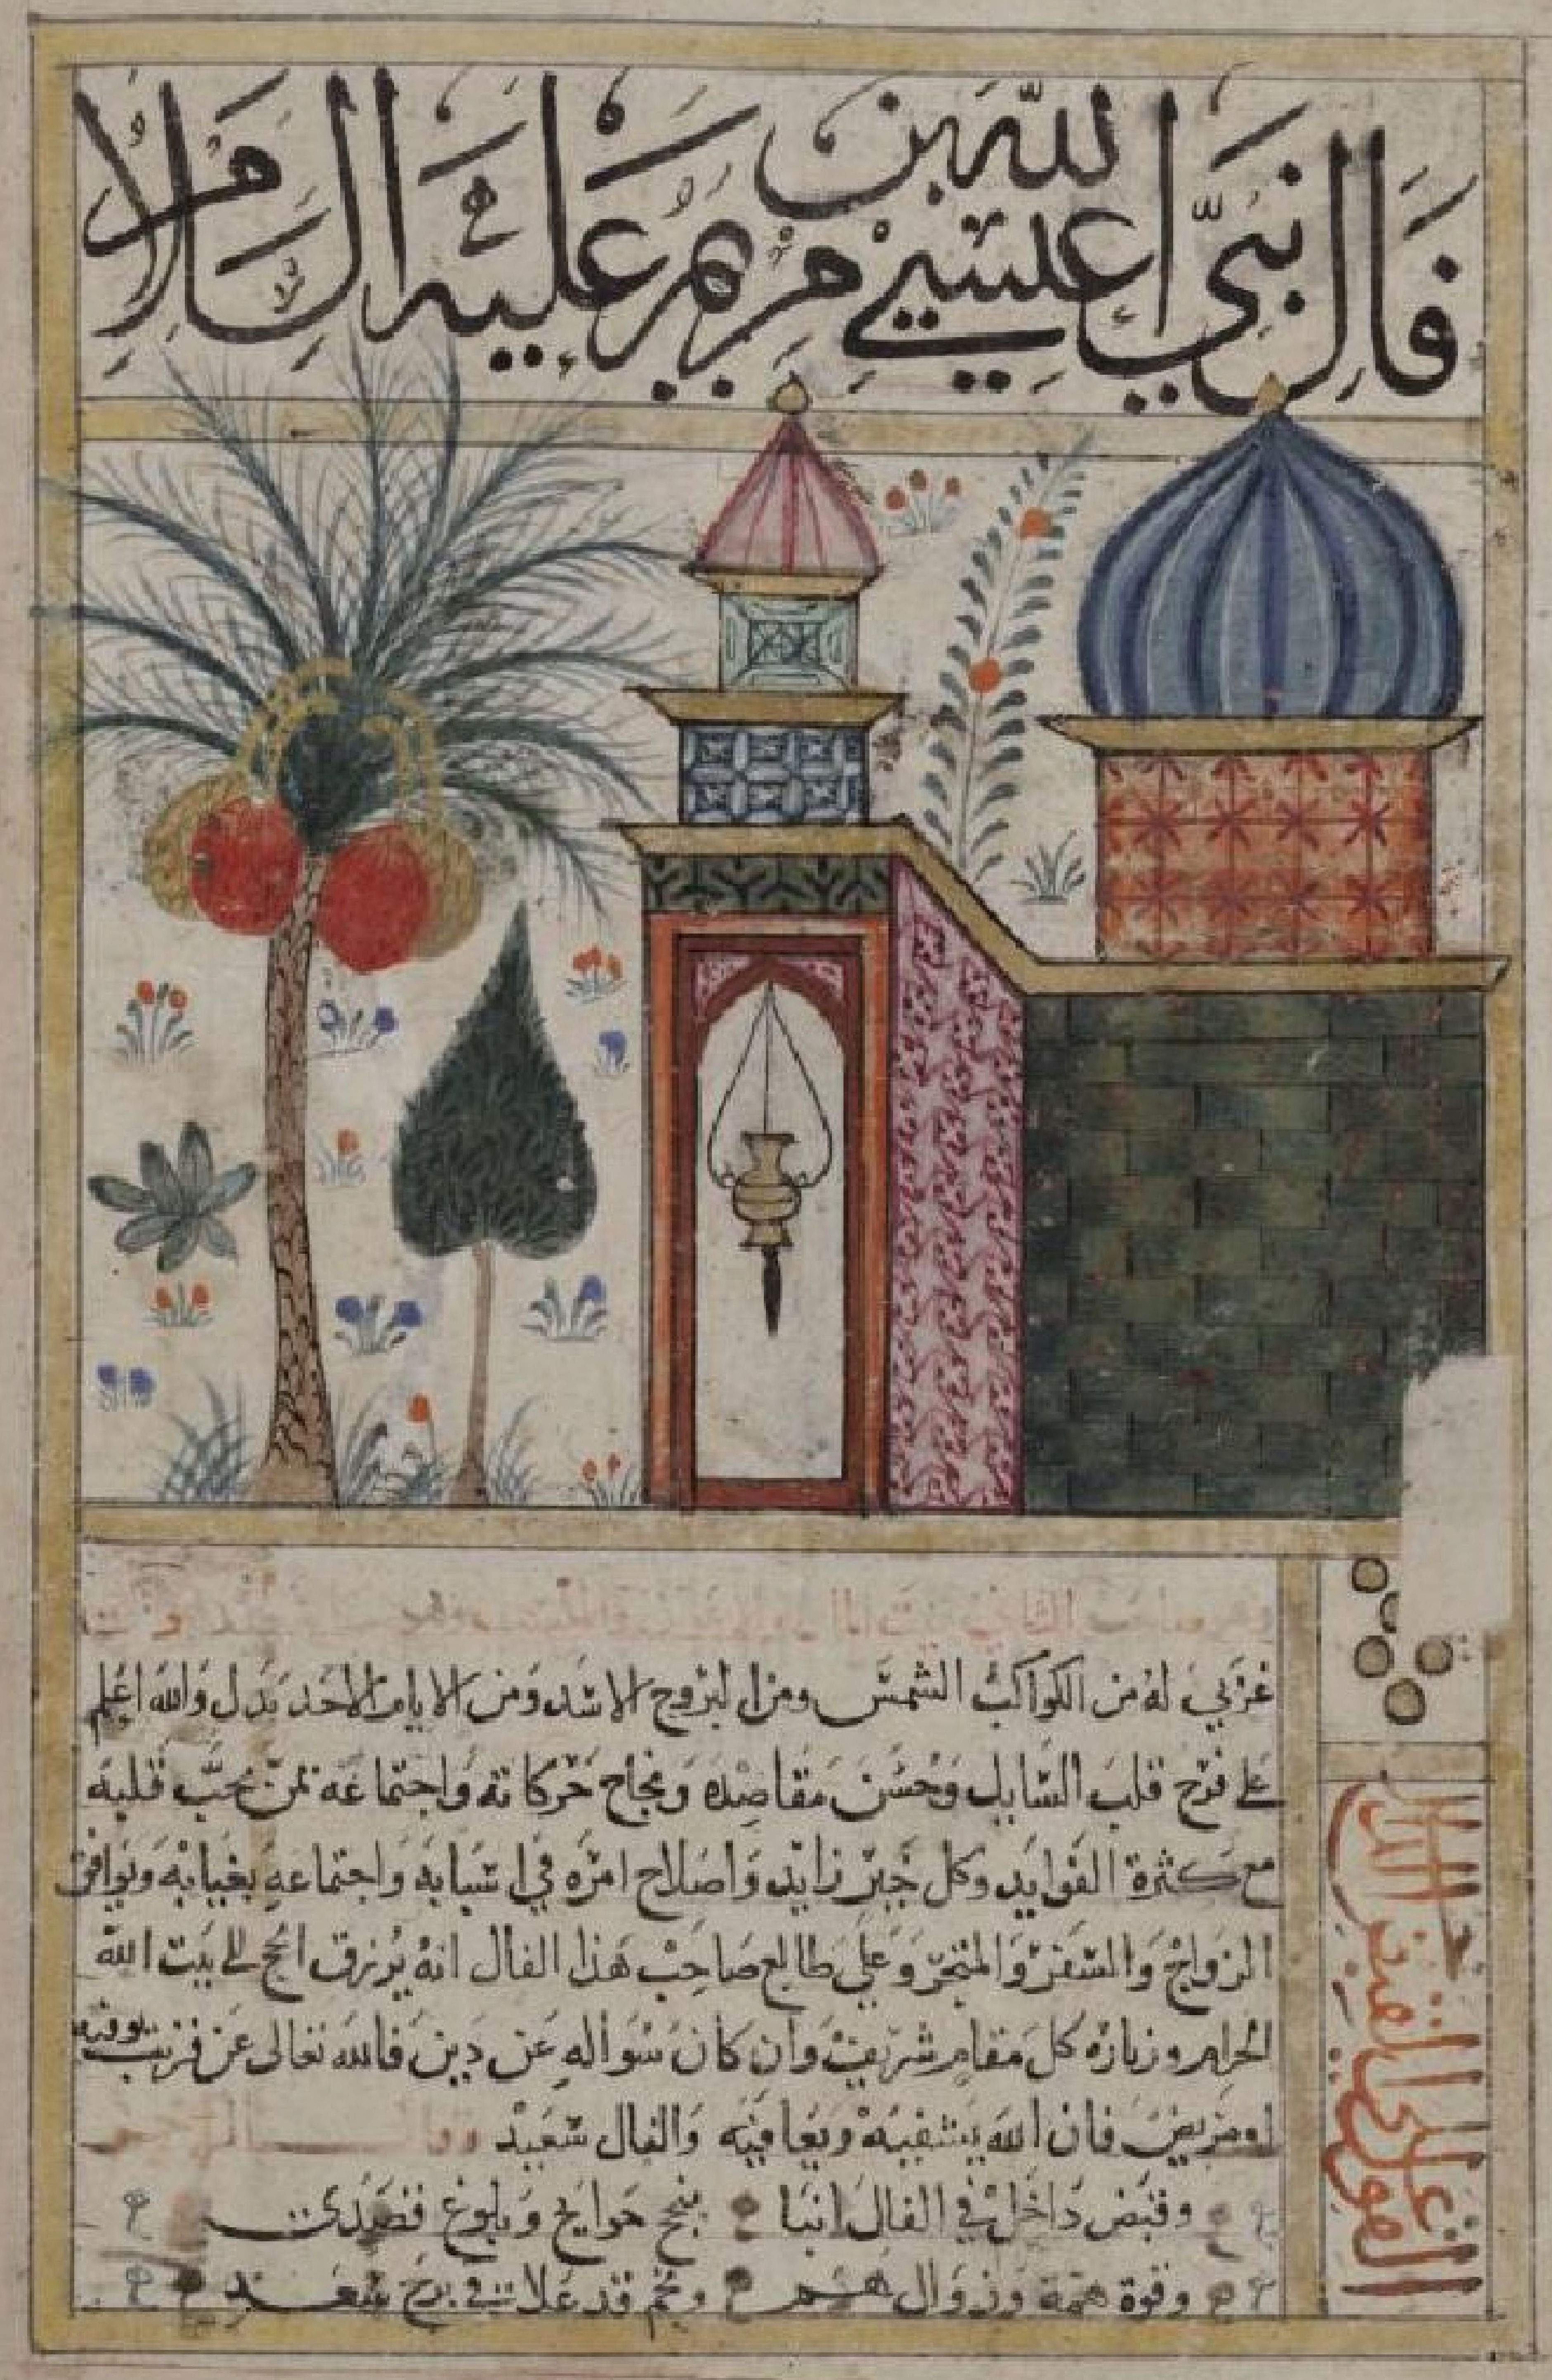 فال نبي الله عيسى بن مريم عليه السلام
غربي له من الكواكب الشمس ومن البروج الاسد ومن الايام الاحد يدل والله اعلم
على فرح قلب السايل وحسن مقاصده ونجاح حركاته واجتماعه بمن يحب قلبه
مع كثرة الفوايد وكل خير زايد واصلاح امره في اسبابه واجتماعه بغيابه ويوافق
الزواج والسفر والمتجر وعلى طالع صاحب هذا الفال انه يرزق الحج الى بيت الله
الحرام وزيارة كل مقام شريف وان كان سواله عن دين فالله تعالى عن قريب يوفيه
او مريض فان الله يشفيه ويعافيه والفال سعيد
وقبض داخل في الفال انبا بنجح حوايج وبلوغ قصدي
وقوة همة وزوال هم ونجم قد علا في برج سعد